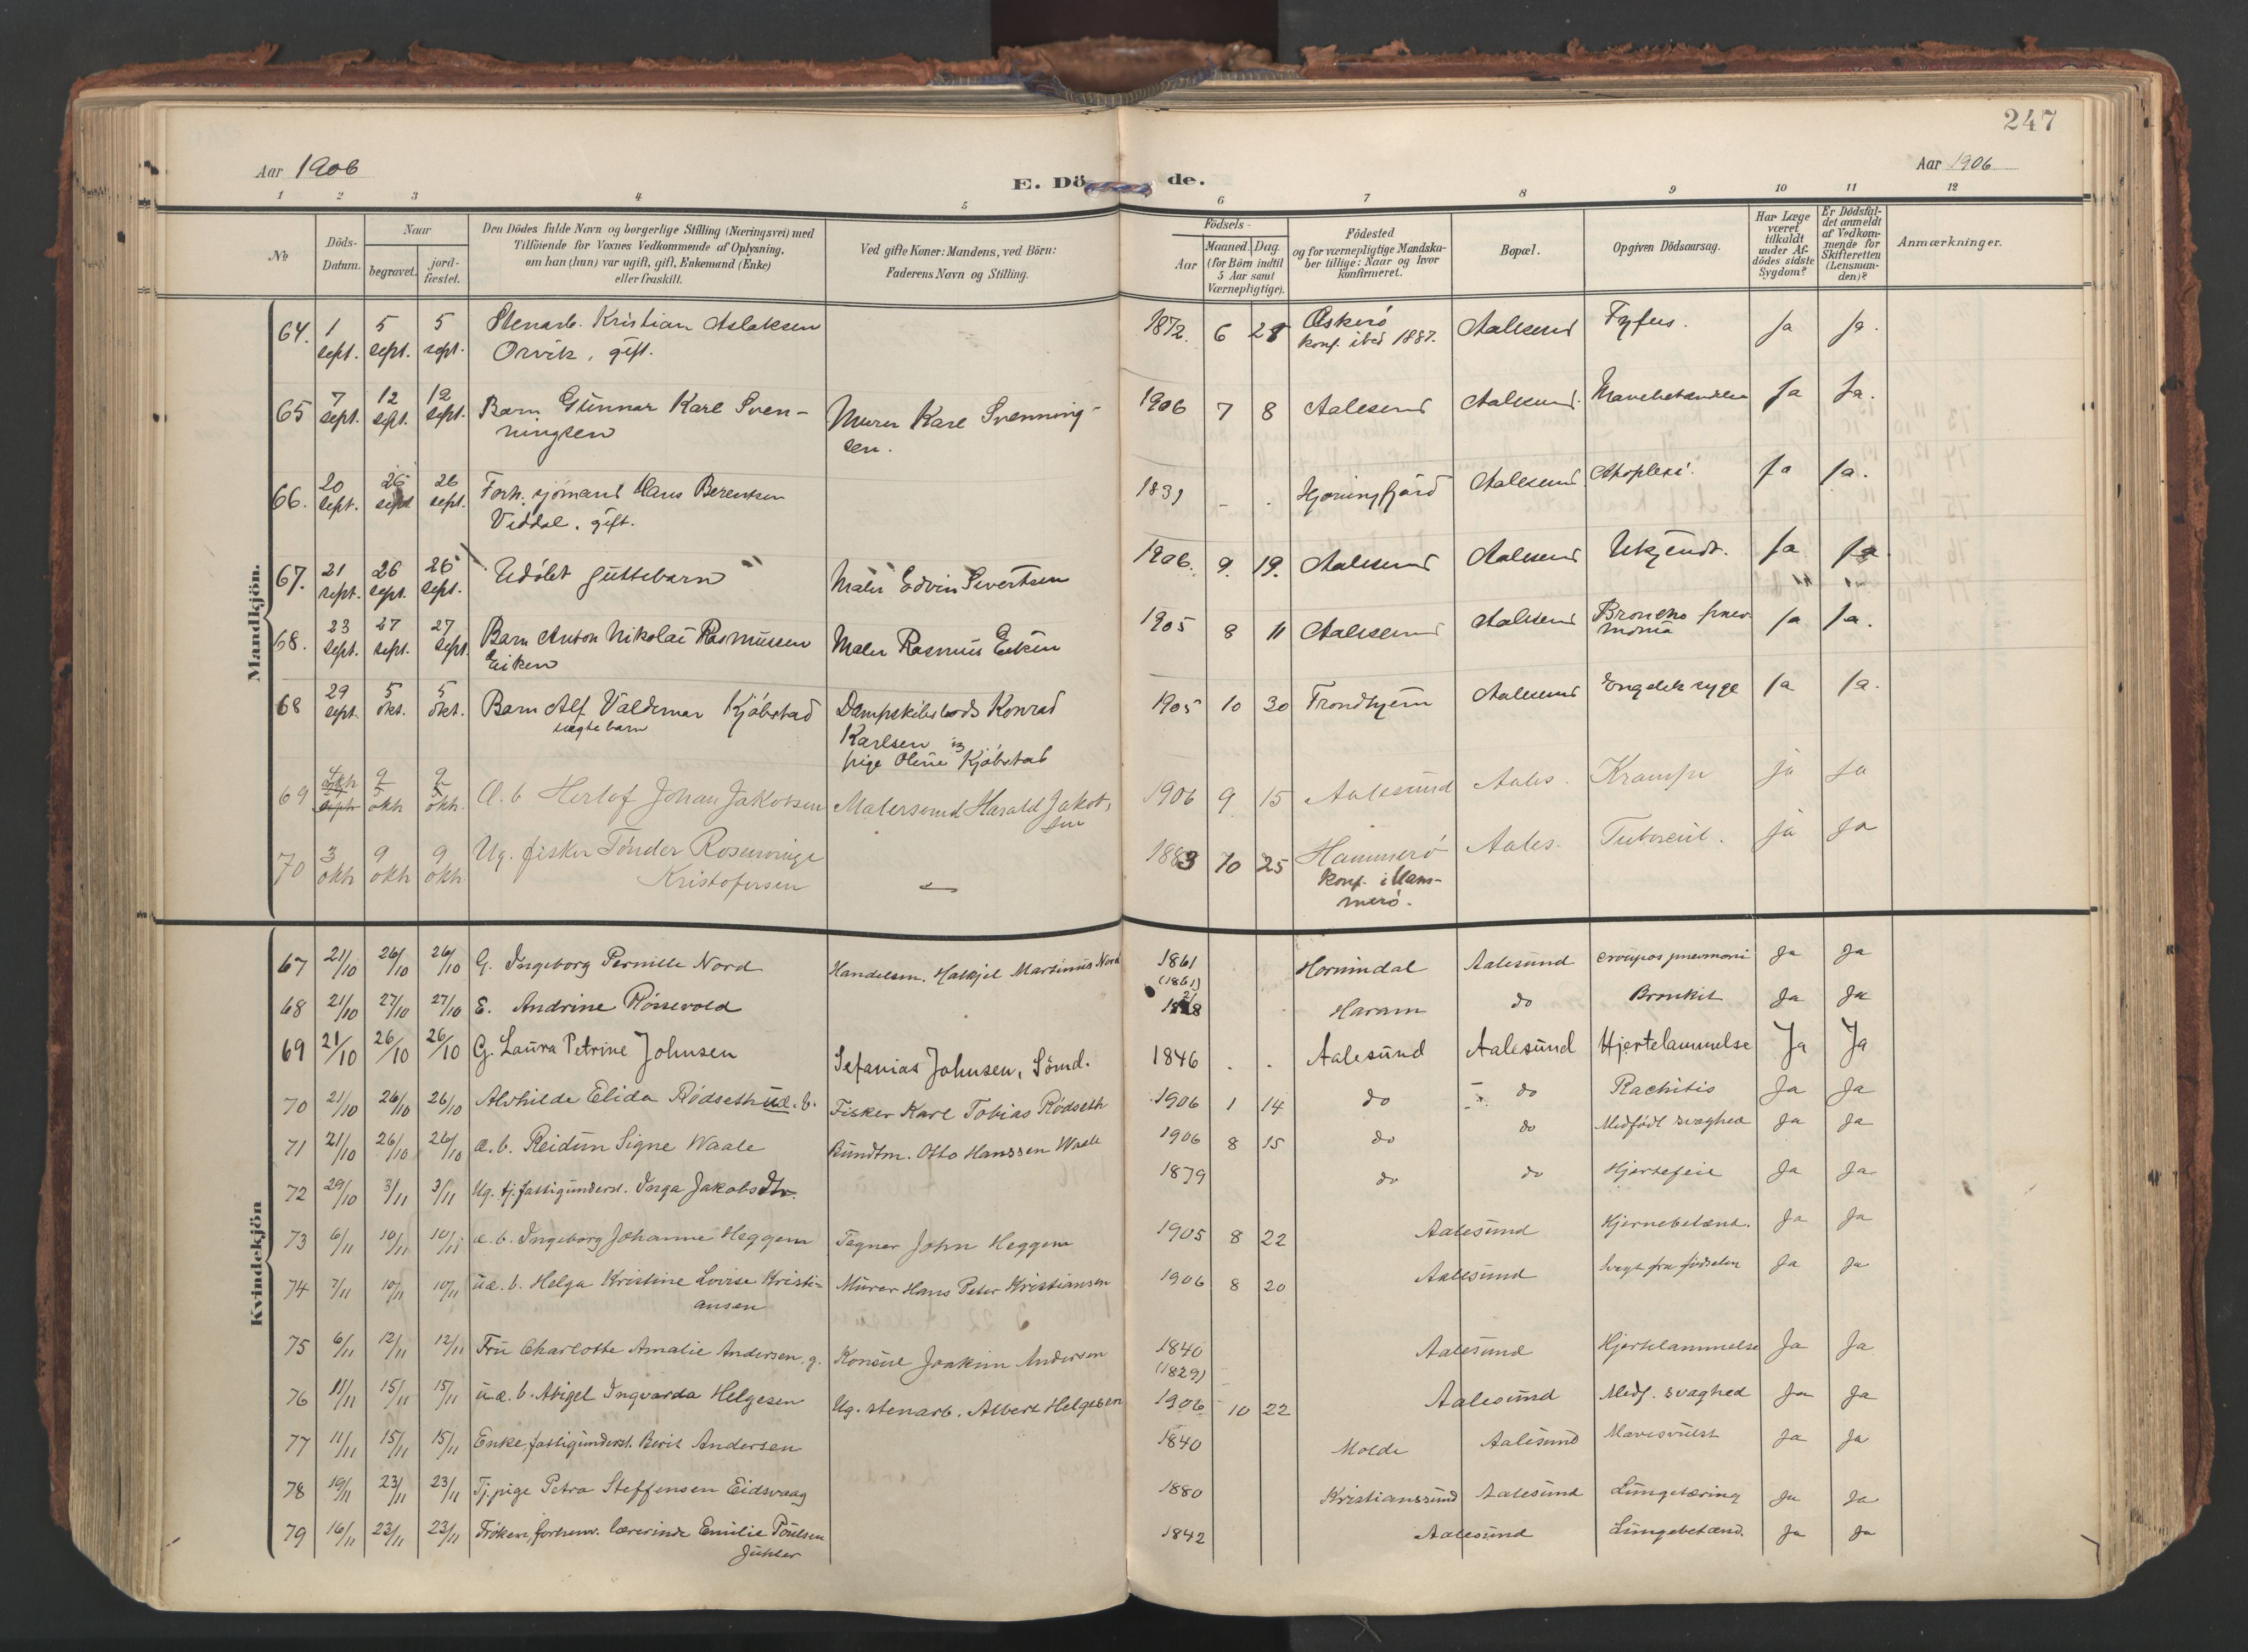 247
Aar 1906
E. Döde.
Aar 1906
1 2 3 4 5 6 7 8 9 10 11 12
No
Döds-Datum.
Naar
begravet.
jord-fæstet.
Den Dödes fulde Navn og borgerlige Stilling (Næringsvei) med
Tilföiende for Voxnes Vedkommende af Oplysning,
om han (hun) var ugift, gift, Enkemand (Enke)
eller fraskilt.
Ved gifte Koner: Mandens, ved Börn:
Faderens Navn og Stilling.
Födsels-
Aar
Maaned. Dag.
(for Börn indtil
5 Aar samt
Værnepligtige).
Födested
og for værnepligtige Mandska-
ber tillige: Naar og hvor
konfirmeret.
Bopæl.
Opgiven Dödsaarsag.
Har Læge
været
tilkaldt
under Af-
dödes sidste
Sygdom?
Er Dödsfal-
det anmeldt
af Vedkom-
mende for
Skifteretten
(Lensman-
den)?
Anmærkninger.
Mandkjön.
64. 1 sept. 5 sept. 5 sept. Stenarb. Kristian Aslaksen 1872. 6 28 Aalesund Tyfus. ja ja.
Orvik, gift. konf. ibid 1887.
65 7 sept. 12 sept. 12 sept. Barn Gunnar Karl Sven-
ningsen Murer Karl Svenning-
sen. 1906 7 8 Aalesund Aalesund. ja ja.
66. 20 sept. 26 sept 26 sept. Forh. sjömand Hans Berentsen 1831 - . Hjörungfjord Aalesund Apoplexi. ja ja.
Viddal, gift.
67. 21 sept. 26 sept. 26 sept. Udöbt guttebarn Maler Edvin Sivertsen 1906. 9. 19. Aalesund Aalesund Ukjendt. ja ja
68. 23 sept. 27 sept. 27 sept. Barn Anton Nikolai Rasmussen Maler Rasmus Eiken 1905 8 11 Aalesund Aalesund Broncho pnev-
monia ja ja.
Eiken
68 29 sept. 5 okt. 5 okt. Barn Alf Valdemar Kjöbstad Dampskibslods Konrad 1905 10 30 Trondhjem Aalesund Engelsk syge ja ja.
uægte barn Karlsen
pige Oline Kjöbstad
69 4 okt 9 okt 9 okt. Æ. b Herlof Johan Jakobsen Malersvend Harald Jakob-
sen 1906 9 15 Aalesund Aales. Krampe ja ja
70 3 okt 9 okt 9 okt. Ug. fisker Tönder Rosenvinge 1883 10 25 Hammerö Aales. Tuberkul. ja ja
Kristofersen konf. i Ham-
merö.
Kvindekjön
67 21/10 26/10 26/10 G. Ingeborg Pernille Nord Handelsm. Martinus Nord 1861 Hornindal Aalesund croupøs pneumoni Ja Ja
(1861)
68 21/10 27/10 27/10 E. Andrine Rössevold Haram do Bronkit Ja Ja
69 21/10 26/10 26/10 G. Laura Petrine Johnsen Sefanias Johnsen, Sömd. 1846 . . Aalesund Aalesund Hjertelammelse Ja Ja
70 21/10 26/10 26/10 Alvhilde Elida Rödseth u.æ.b. Fisker Karl Tobias Rödseth 1906 1 14 do do Rachitis Ja Ja
71 21/10 26/10 26/10 æ. b. Reidun Signe Waale Bundtm. Otto Hanssen Waale 1906 8 15 do do Medfödt svaghed Ja Ja
72 29/10 3/11 3/11 Ug. tj. fattigunderst. Inga Jakobsdtr. 1879 do do Hjertefeil Ja Ja
73 6/11 10/11 10/11 æ. b. Ingeborg Johanne Heggem Tegner John Heggem 1905 8 22 Aalesund Hjernebetænd. Ja Ja
74 7/11 10/11 10/11 u.æ. b. Helga Kristine Lovise Kristi-
ansen Murer Hans Peter Kristiansen 1906 8 20 Aalesund Svagt fra födselen Ja Ja
75 6/11 12/11 12/11 Fru Charlotte Amalie Andersen, g. Konsul Joakim Andersen 1840 Aalesund Hjertelammelse Ja Ja
(1829)
76 11/11 15/11 15/11 u.æ. b. Abigel Ingvarda Helgesen Ug. stenarb. Albert Helgesen 1906 10 22 Aalesund Medf. svaghed Ja Ja
77 11/11 15/11 15/11 Enke, fattigunderst. Berit Andersen 1840 Molde Aalesund Mavesvulst Ja Ja
78 19/11 23/11 23/11 Tj. pige Petra Steffensen Eidsvaag 1880 Kristianssund Aalesund Lungetæring Ja Ja
79 16/11 23/11 23/11 Fröken, forhenv. lærerinde Emilie Poulsen 1842 Aalesund Lungebetænd. Ja Ja
Juhler